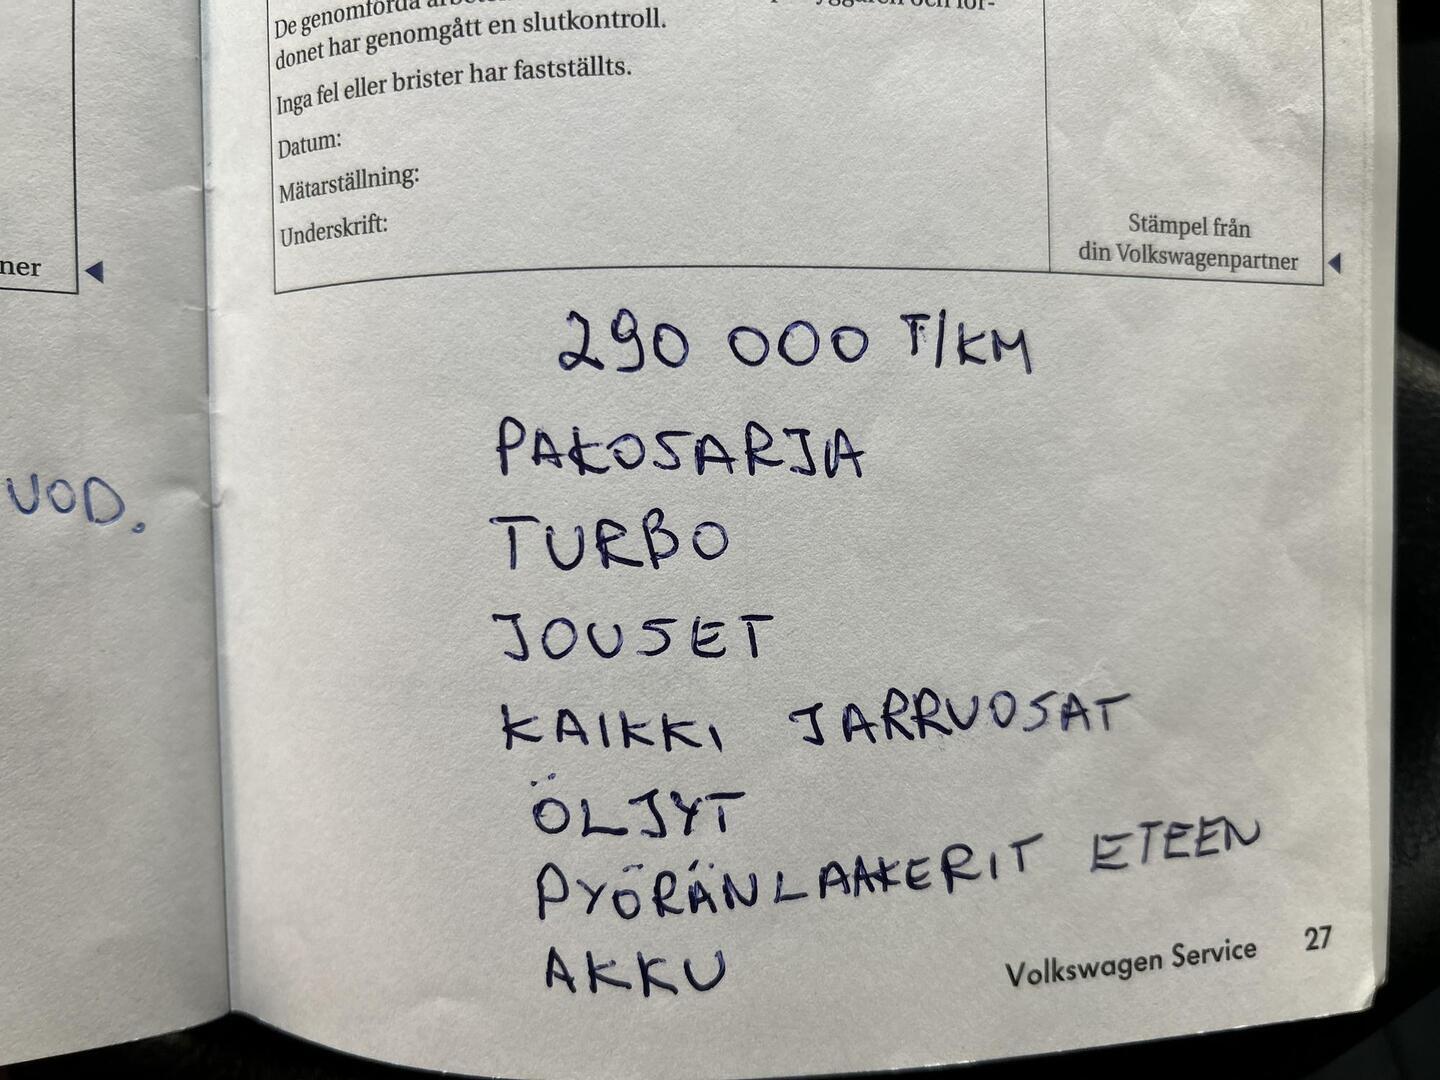 De genomförda
donet har genomgått en slutkontroll.
Inga fel eller brister har fastställts.
Datum:
Mätarställning:
Underskrift:
Stämpel från
din Volkswagenpartner
ner
290 000 T/KM
PAKOSARJA
VOD.
TURBO
JOUSET
KAIKKI JARRUOSAT
ÖLJYT
PYÖRÄNLAAKERIT ETEEN
AKKU
Volkswagen Service 27